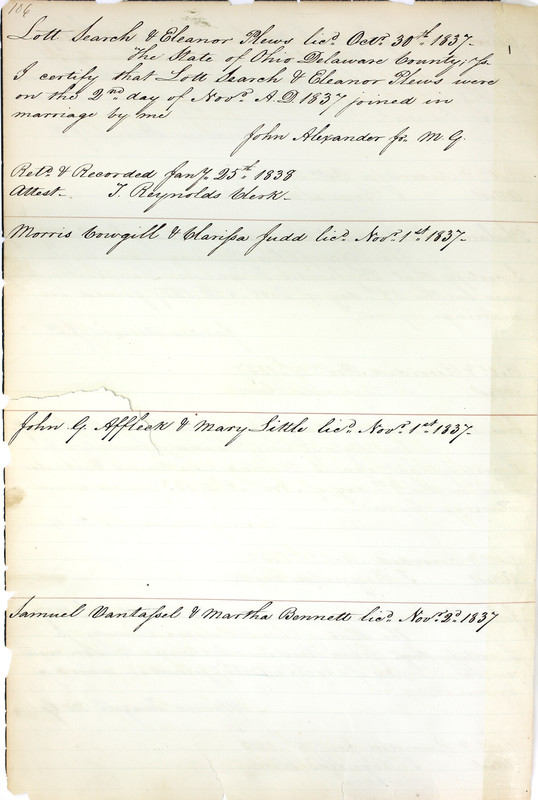 106
Lott Search & Eleanor Plews licd. Octr. 30th. 1837-
The State of Ohio Delaware County, ss.
I certify that Lott Search & Eleanor Plews were
on the 2nd day of Novr. A.D 1837 joined in
marriage by me
John Alexander Jr. M. G.
Retd. & Recorded Jany. 25th. 1838
Attest- T. Reynolds Clerk-
Morris Cowgill & Clarissa Judd licd. Novr. 1st. 1837-
John G. Affleck & Mary Little licd. Novr. 1st. 1837-
Samuel Vantassel & Martha Bennett licd. Novr. 2d. 1837